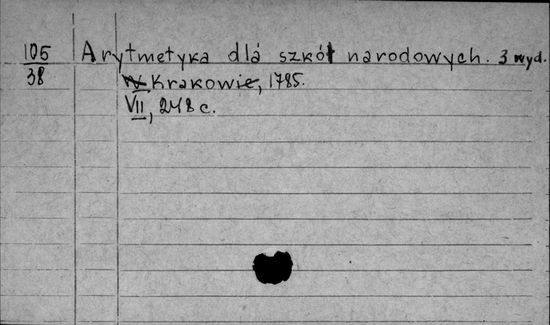 105 Arytmetyka dlá szkół narodowych. 3 wyd.
38 W Krakowie, 1785.
VII, 248 c.